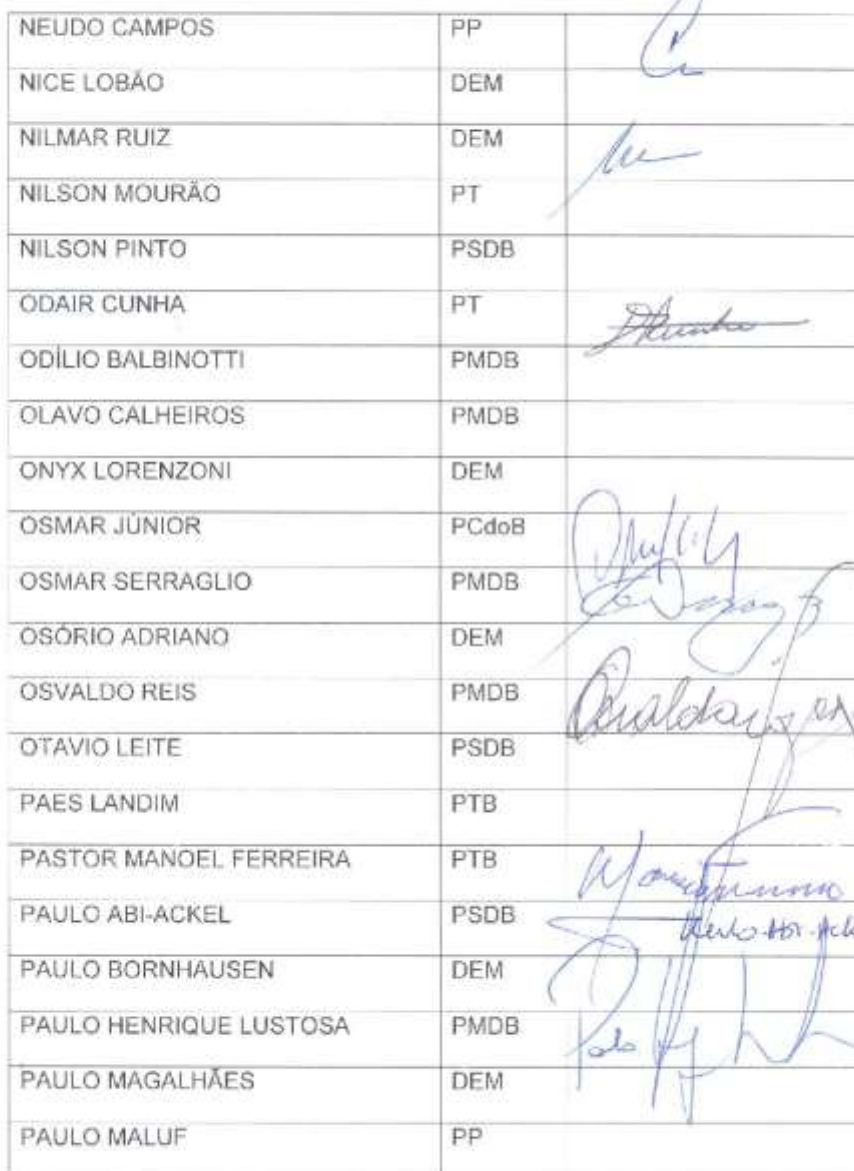 NEUDO CAMPOS PP
NICE LOBÃO DEM
NILMAR RUIZ DEM
NILSON MOURÃO PT
NILSON PINTO PSDB
ODAIR CUNHA PT
ODÍLIO BALBINOTTI PMDB
OLAVO CALHEIROS PMDB
ONYX LORENZONI DEM
OSMAR JÚNIOR PCdoB
OSMAR SERRAGLIO PMDB
OSÓRIO ADRIANO DEM
OSVALDO REIS PMDB
OTAVIO LEITE PSDB
PAES LANDIM PTB
PASTOR MANOEL FERREIRA PTB
PAULO ABI-ACKEL PSDB
PAULO BORNHAUSEN DEM
PAULO HENRIQUE LUSTOSA PMDB
PAULO MAGALHÃES DEM
PAULO MALUF PP